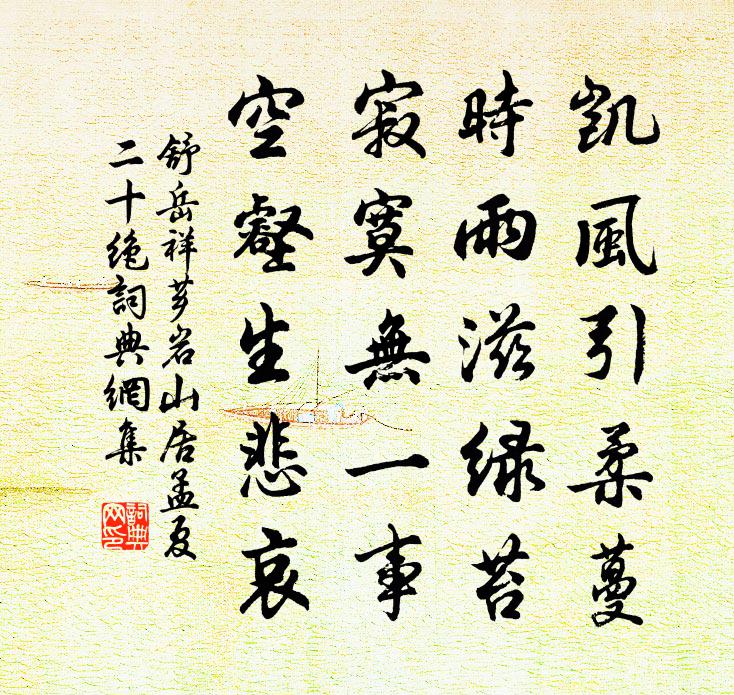 凱風引柔蔓
時雨滋綠苔
寂寞無一事
空壑生悲哀
舒岳祥芗岩山居孟夏
二十絶詞典網集
詞典網印